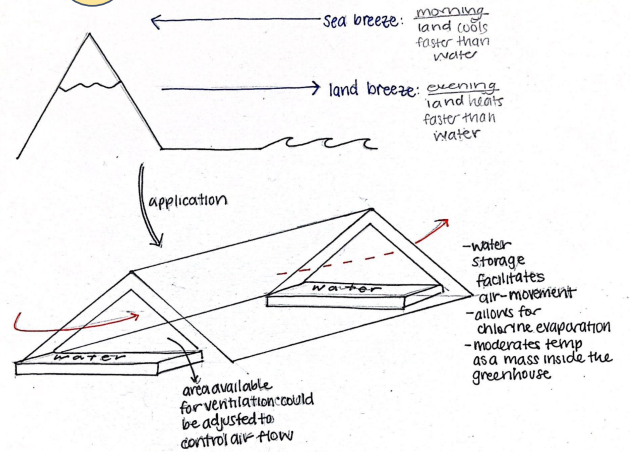 sea breeze:
morning
land cools
faster than
water
land breeze:
evening
land heats
faster than
water
application
water
water
-water
storage
facilitates
air-movement
-allows for
chlorine evaporation
-moderates temp
as a mass inside the
greenhouse
area available
for ventilation could
be adjusted to
control air flow